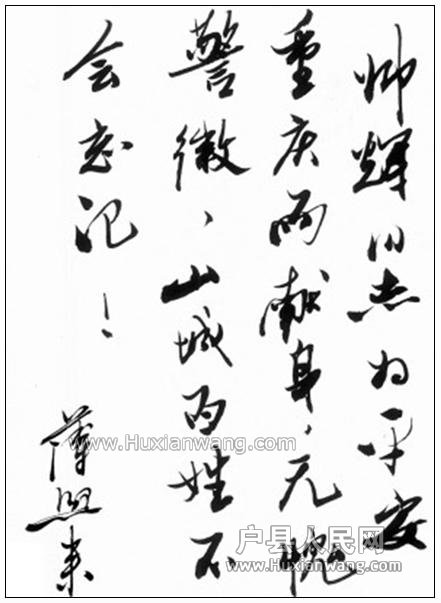 帅辉同志为平安
重庆而献身，无愧
警徽，山城百姓不
会忘记！
薄熙来
www.Huxianwang.com
户县人民网
www.Huxianwang.com